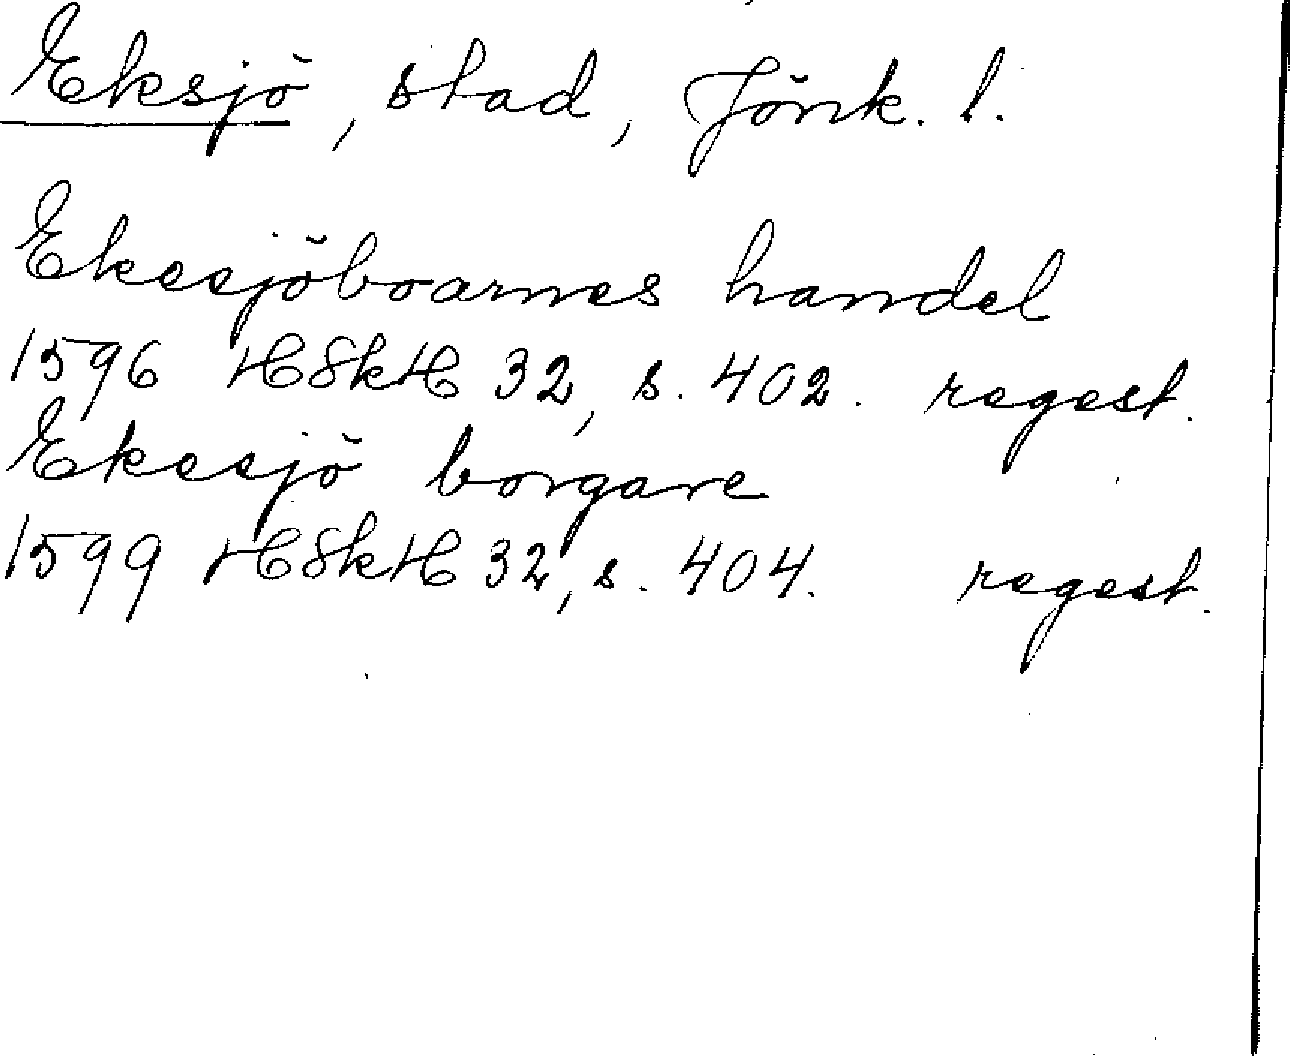 Eksjö, stad, Jönk. l.
Ekesjöboarnes handel
1596 HSkH 32, s. 402. regest.
Ekesjö borgare
1599 HSkH 32, s. 404. regest.